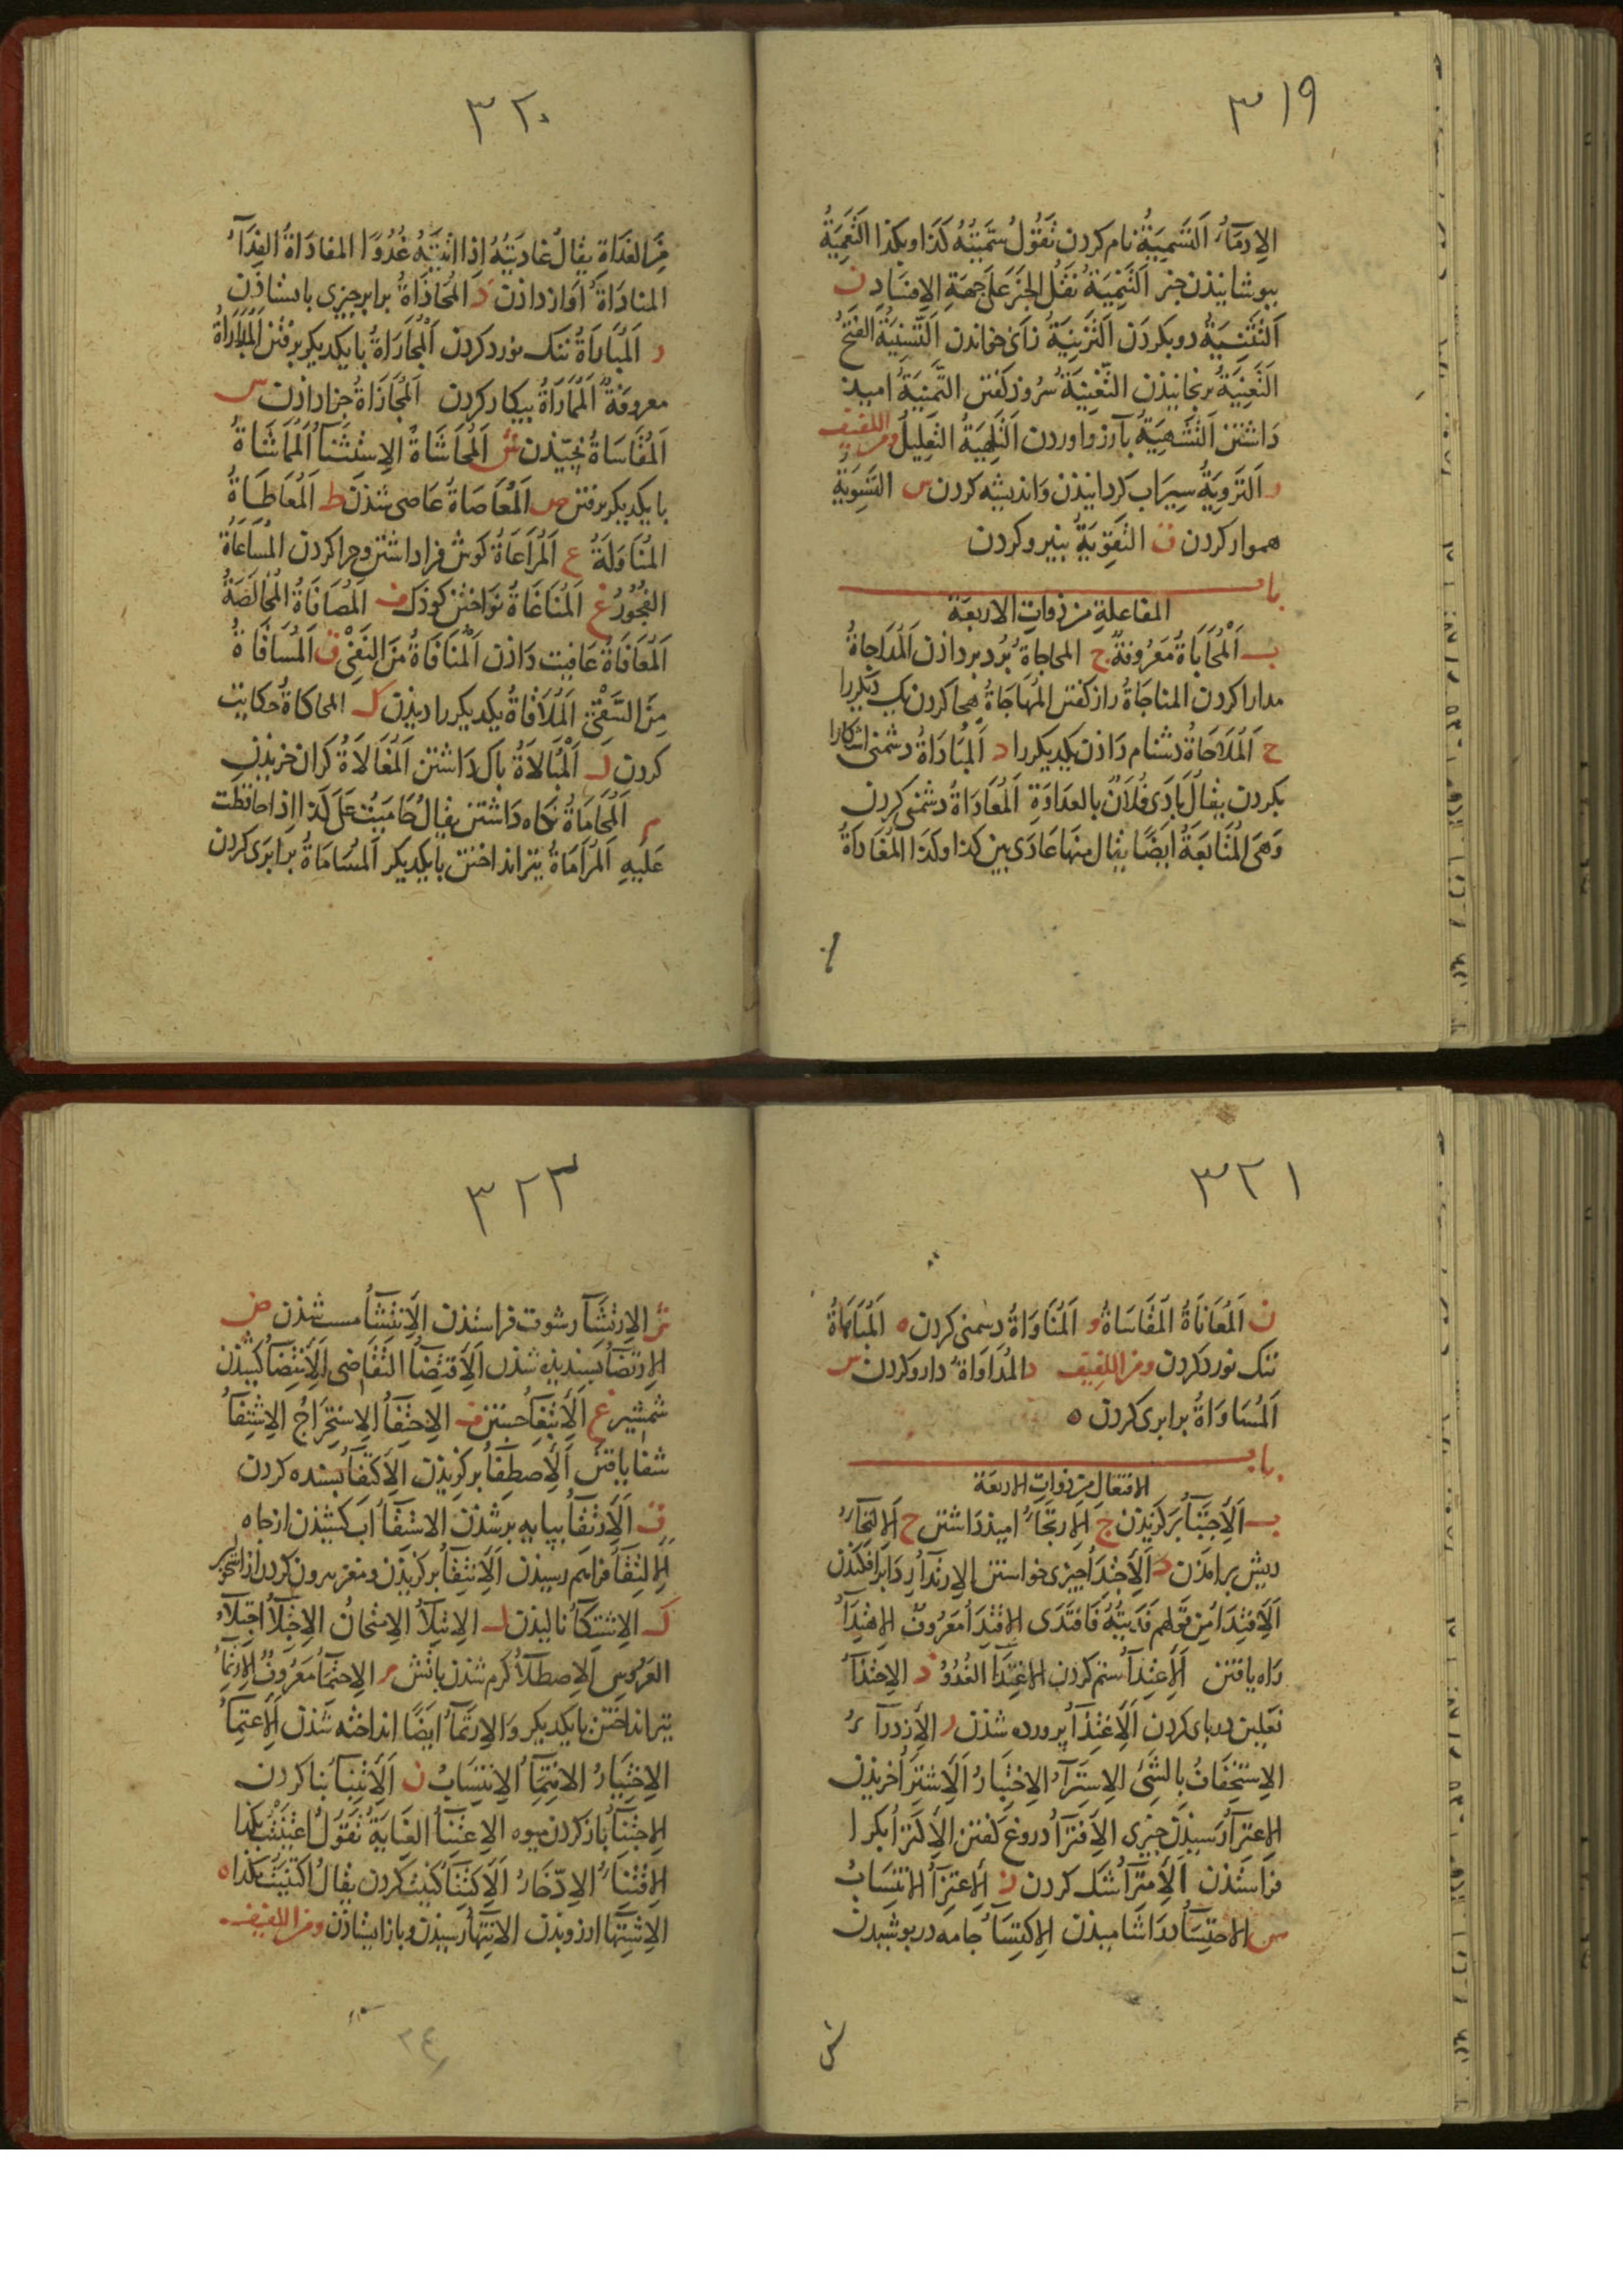 ٣١٩
الاِدمَآءُ اَلتَّسْمِيَةُ نام كردن تَقُولُ سَمَّيْتُهُ كَذَا وبكذا التَّعْمِيَةُ
بپوشانيذن خبر اَلتَّنْمِيَةُ نَقْلُ الخَبَرِ عَلَى جِهَةِ الاِفسَادِ ن
اَلتَّثْنِيَةُ دو بكردَن اَلتَّزْنِيَةُ زانى خواندن اَلتَّسْنِيَةُ الفَتْحُ
التَّعْنِيَةُ برنجانيذن التَّغْنِيَةُ سُروذ كفتن التَّمْنِيَةُ اميد
دَاشتن التَّشْهِيَةُ بآرزو اوردن اَلتَّلْهِيَةُ التَّعْلِيلُ ومن اللفيف
ر اَلتَّرْوِيَةُ سِيرَاب كردانيذن وَانديشه كردن س التَّسْوِيَةُ
هموار كردن ق التَّقْوِيَةُ بنيرو كردن
باب
المفاعلةِ من ذواتِ الاربعَة
ب اَلْمُحَابَاةُ مَعْرُوفَةٌ ج المحاجاةُ بُرد بردادن اَلْمُدَاجاةُ
مدارا كردن المناجَاةُ راز كفتن المُهَاجَاةُ هجا كردن يك ديكررا
ح اَلْمُلَاحَاةُ دشنام دَاذن يكديكررا د اَلْمُبَادَاةُ دشمنى اشكارا
بكردن يقالُ بَادَى فُلَانٌ بالعدَاوَةِ اَلْمُعَادَاةُ دشمنى كردن
وَهىَ المُتَابَعَةُ ايضًا يقال منهَا عَادَى بين كذا وكَذَا المُغَادَاةُ
٣٢٠
مِنَ الغَدَاةِ يقالُ غادَيتُهُ اِذا اتيتَهُ غُدُوًا المفادَاةُ الفِدَآءُ
المنادَاةُ آواز داذن ذ المُحَاذَاةُ برابر جيزى باستاذن
ر اَلمُبَارَاةُ ننك نورد كردن اَلْمُجَارَاةُ با يكديكر برفتن اَلْمُدَارَاةُ
معروفةٌ اَلْمُمَارَاةُ بيكار كردن اَلْمُجَازَاةُ جزا داذن س
اَلْمُقَاسَاةُ ش اَلْمُحَاشَاةُ الاِسْتثنَآءُ اَلْمُمَاشَاةُ
با يكديكر برفتن ص اَلْمُعَاصَاةُ عَاصى شذن ط اَلْمُعَاطَاةُ
المُنَاوَلَةُ ع اَلْمُرَاعَاةُ كوش فرا داشتن وجرا كردن المُسَاعَاةُ
الفُجُورُ غ اَلْمُنَاغَاةُ نواختن كوذك ف اَلْمُصَافَاةُ المُخَالَصَةُ
اَلْمُعَافَاةُ عَافيت دَاذن اَلْمُنَافَاةُ مِنَ النَفْىِ ق اَلْمُسَاقَاةُ
مِنَ السَّقْىِ اَلْمُلَاقَاةُ يكديكررا ديذن ك المحاكاةُ حكايت
كردن ل اَلْمُبَالَاةُ باك دَاشتن اَلْمُغَالَاةُ كران خريذن
م اَلْمُحَامَاةُ نكاه داشتن يقالُ حَامَيْتُ عَلَى كَذَا اِذا حافظت
عَليهِ اَلْمُرَامَاةُ تير انداختن با يكديكر اَلمُسَامَاةُ برابرى كردن
٣٢١
ن اَلْمُعَانَاةُ المُقَاسَاةُ و اَلْمُنَاوَاةُ دشمنى كردن ه اَلْمُبَاهَاةُ
ننك نورد كردن ومن اللفيف د المُدَاوَاةُ دارو كردن س
اَلْمُسَاوَاةُ برابرى كردن ه
باب
الافتعال من ذواتِ الاربعَة
ب اَلاِجْتِبَآءُ بركزيدن ج اَلاِرتجَآءُ اميذ دَاشتن ح اَلالتِحَآءُ
ريش برامذن د اَلاِجْتِدَآءُ جيزى خواستن الاِرتدَآءُ ردَا برافكندن
اَلاِفتِدَآءُ من قولهم فديتُهُ فَافتَدَى الاقتِدَآءُ مَعْرُوفٌ الاهتدَآءُ
رَاه يافتن اَلاِعْتِدَآءُ ستم كردن الاغتِدَآءُ الغُدُوُّ ذ الاحتذَآءُ
نَعلين درپاى كردن اَلاِغْتِذَآءُ پرورده شذن ر الاَزدرآءُ
الاِستِخْفَافُ بالشىْءِ الاِسترَآءُ الاِختِيَارُ اَلاِشْتِرَآءُ خريذن
الاعترآءُ رسيذن جيزى الاِفترَآءُ دروغ كفتن الاِكترَآءُ بكرا
فراستذن اَلاِمتِرَآءُ شك كردن ز اَلاِعتِزَآءُ الانتسَابُ
س الاحتِسَآءُ بداشاميذن الاِكتِسَآءُ جامه درپوشيدن
٣٢٣
ش الاِرتشَآءُ رشوت فراستذن الاِنتشَآءُ مست شذن ض
الاِرتضَآءُ بسنديذه شذن اَلاِقتِضَآءُ التقَاضى اَلاِنتِضَآءُ كشيذن
شمشير غ اَلاِبْتِغَآءُ جستن ف الاِختِفَآءُ الاِستِخرَاجُ الاِشتِفَآءُ
شفا يافتن اَلاِصطِفَآءُ بركزيذن اَلاِكتفَآءُ بسنده كردن
ق اَلاِرْتقَآءُ بپايه برشذن الاستِقَآءُ اَب كشيذن از جاه
اَلالتِقَآءُ فراهم رسيذن اَلاِنتِقَآءُ بركزيذن ومغز بيرون كردن از استخوان
ك الاشتِكَآءُ ناليذن ل الاِبتِلَآءُ الاِمتحَانُ الاِجْتِلَآءُ اجتلَآءُ
العَرُوسِ اَلاِصطِلَآءُ كرم شذن باتش م الاِحتمَآءُ مَعرُوفٌ الاِرتمَآءُ
تير انداختن با يكديكر وَالاِرتمَآءُ ايضًا انداخته شَذن اَلاِعتِمَآءُ
الاِختِيَارُ الانتِمَآءُ الاِنتِسَابُ ن اَلاِبْتِنَآءُ بنا كردن
الاِجْتنَآءُ باز كردن ميوه الاِعتِنَآءُ العِنَايَةُ تَقُولُ اعْتَنَيْتُ بكذا
الاِقْتنَآءُ الاِدّخَارُ اَلاِكتِنَآءُ كنيت كردن يقالُ اكتَنَيْتُ بكذا ه
الاِشتِهَآءُ ارزويذن الاِنتِهَآءُ رسيذن وباز ايستاذن ومن اللفيف